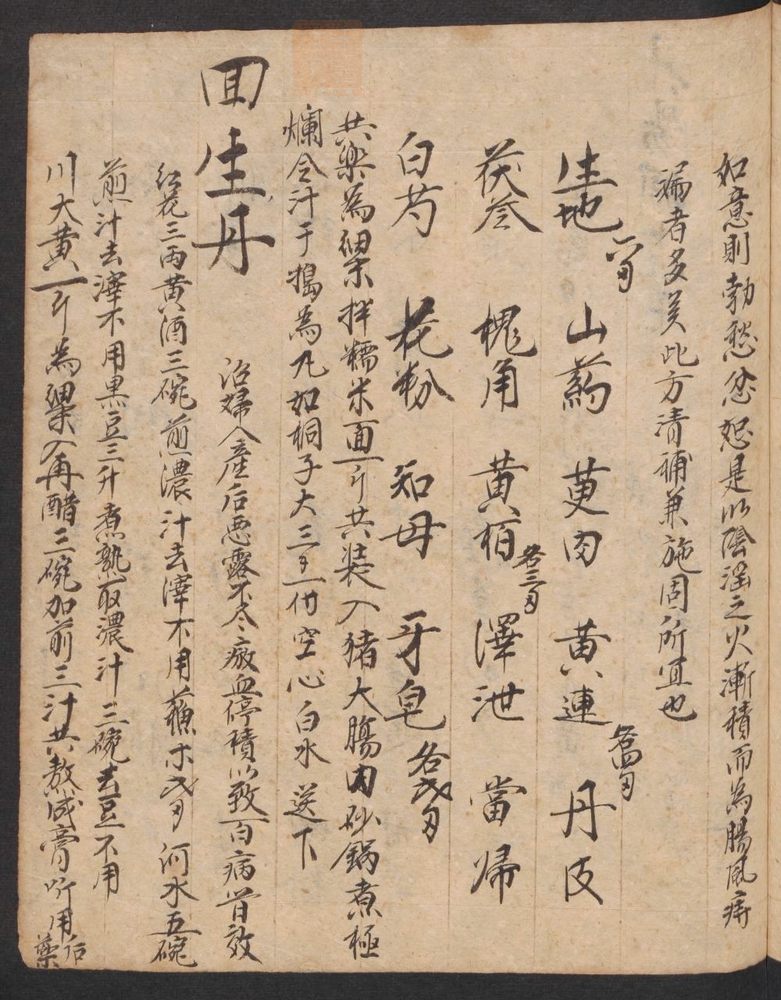 如意則勃愁忿怒是以陰滛之火漸積而為腸風痔
漏者多矣此方清補兼施固所宜也
生地八刄 山葯 萸肉 黄連 丹皮各四刄
茯苓 槐角 黄栢 澤泄 當帰各三刄
白芍 花粉 知母 牙皂各弍刄
共藥為細末拌糯米面一斤共装入猪大腸内砂鍋煮極
爛合汁于搗為丸如桐子大三 付空心白水送下
回生丹
治婦人産后悪露不尽瘀血停積以致百病皆效
紅花三兩黄酒三碗煎濃汁去滓不用蘓木弍刄河水五碗
煎汁去滓不用黒豆三升煮熟取濃汁三碗去豆不用
川大黄一斤為 入再醋三碗加前三汁共熬成膏听用后藥